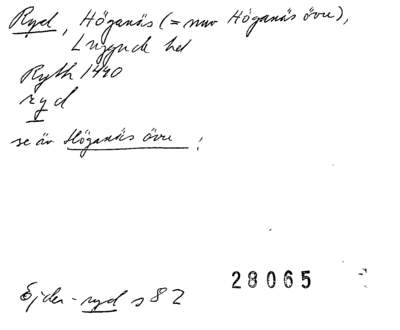 Ryd, Höganäs (= nuv Höganäs övre),
Luggude hd
Ryth 1490
ryd
se äv Höganäs övre
28065
Ejder-ryd s 82